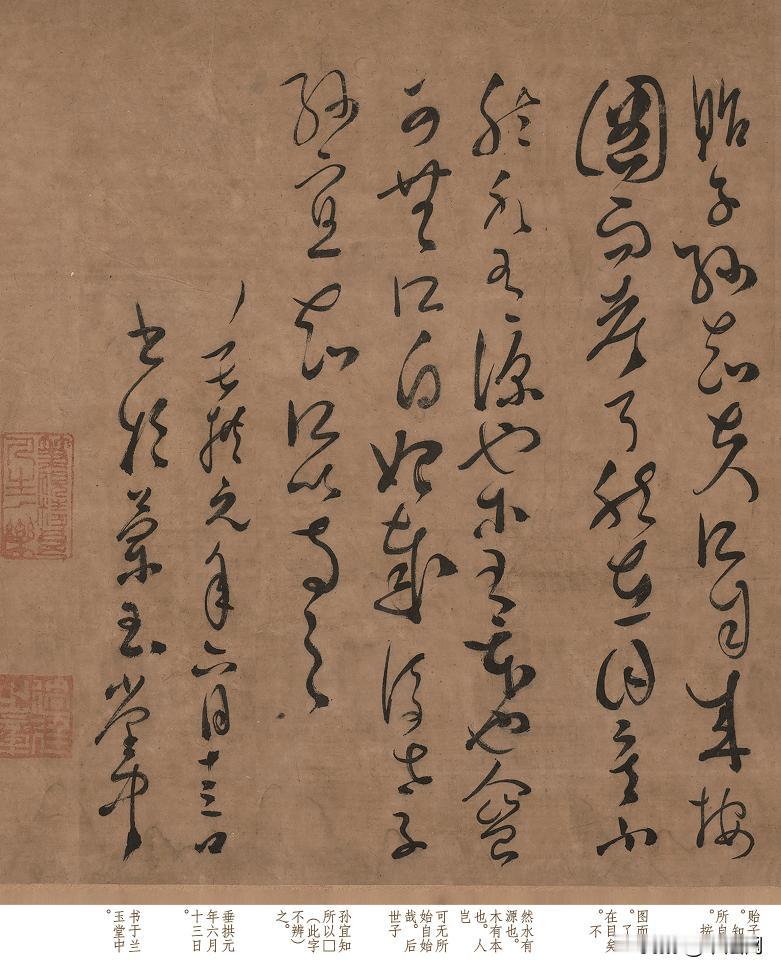 貽子孫知其所自來按
圖而考了然在目矣不
然水有源也木有本也人豈
可無所自始哉後世子
孫宜知所以之
垂拱元年六月十三日
書於蘭玉堂中
贻子
。知
所自
。按
图而
。了
在目矣
。不
然水有
源也。
木有本
也。人
岂
可无所
始自始
哉。后
世子
孙宜知
所以□
（此字
不辨）
之。
垂拱元
年六月
十三日。
书于兰
玉堂中。